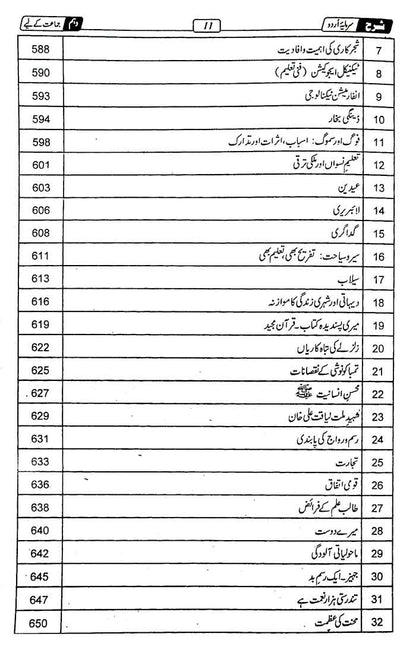 شرح سرمایۂ اُردو 11 دہم جماعت کے لیے
7 شجرکاری کی اہمیت و افادیت 588
8 ٹیکنیکل ایجوکیشن (فنی تعلیم) 590
9 انفارمیشن ٹیکنالوجی 593
10 ڈینگی بخار 594
11 فوگ اور سموگ: اسباب، اثرات اور تدارک 598
12 تعلیمِ نسواں اور ملکی ترقی 601
13 عیدین 603
14 لائبریری 606
15 گداگری 608
16 سیر و سیاحت: تفریح بھی، تعلیم بھی 611
17 سیلاب 613
18 دیہاتی اور شہری زندگی کا موازنہ 616
19 میری پسندیدہ کتاب۔قرآن مجید 619
20 زلزلے کی تباہ کاریاں 622
21 تمباکونوشی کے نقصانات 625
22 محسنِ انسانیت ﷺ 627
23 شہیدِ ملت لیاقت علی خان 629
24 رسم و رواج کی پابندی 631
25 تجارت 633
26 قومی اتفاق 636
27 طالب علم کے فرائض 638
28 میرے دوست 640
29 ماحولیاتی آلودگی 642
30 جہیز۔ایک رسمِ بد 645
31 تندرستی ہزار نعمت ہے 647
32 محنت کی عظمت 650